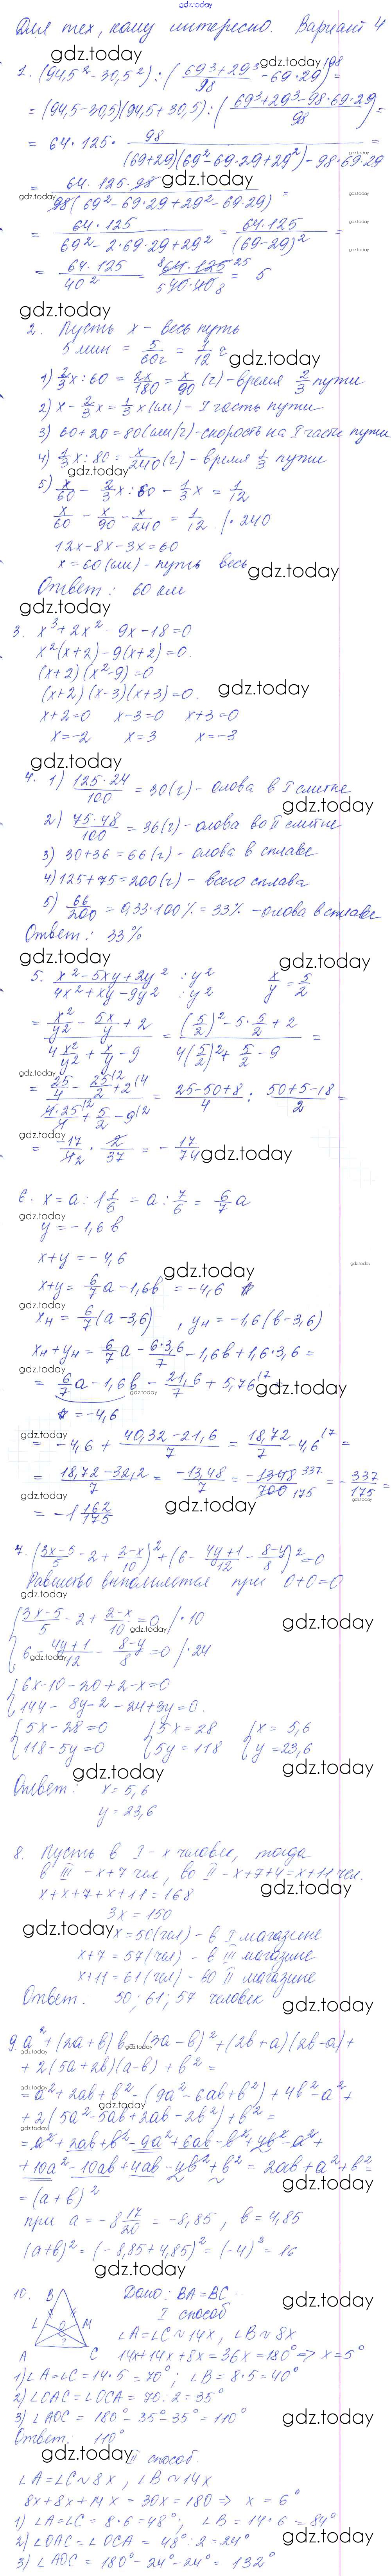 gdz.today
Для тех, кому интересно. Вариант 4
gdz.today
1. (94,5² - 30,5²) : ( (69³ + 29³)/98 - 69·29) =
= (94,5-30,5)(94,5+30,5) : ( (69³+29³-98·69·29)/98 ) =
= 64·125· 98/((69+29)(69²-69·29+29²)-98·69·29)
= 64·125·98/(98(69²-69·29+29²-69·29)) =
gdz.today
= 64·125/(69²-2·69·29+29²) = 64·125/(69-29)² =
= 64·125/40² = 64·125/(40·40) = 5
gdz.today
2. Пусть x - весь путь
5 мин = 5/60 г = 1/12 г
gdz.today
1) 2/3 x : 60 = 2x/180 = x/90 (г) - время 2/3 пути
2) x - 2/3 x = 1/3 x (км) - I часть пути
3) 60+20 = 80 (км/г) - скорость на I части пути
4) 1/3 x : 80 = x/240 (г) - время 1/3 пути
gdz.today
5) x/60 - 2/3 x : 60 - 1/3 x = 1/12
x/60 - x/90 - x/240 = 1/12 /·240
12x-8x-3x=60
x = 60 (км) - путь весь
gdz.today
Ответ: 60 км
gdz.today
3. x³+2x²-9x-18=0
x²(x+2)-9(x+2)=0.
(x+2)(x²-9)=0
(x+2)(x-3)(x+3)=0.
gdz.today
x+2=0 x-3=0 x+3=0
x=-2 x=3 x=-3
gdz.today
4. 1) 125·24/100 = 30 (г) - олова в I слитке
gdz.today
2) 75·48/100 = 36 (г) - олова во II слитке
3) 30+36=66 (г) - олова в сплаве
4) 125+75=200 (г) - всего сплава
5) 66/200 = 0,33·100% = 33% - олова в сплаве
Ответ: 33%
gdz.today
5. (x²-5xy+2y²)/(4x²+xy-9y²) :y² :y² x/y = 5/2
gdz.today
= (x²/y² - 5x/y + 2)/(4x²/y² + x/y - 9) = ((5/2)² - 5·5/2 + 2)/(4(5/2)² + 5/2 - 9) =
gdz.today
= (25/4 - 25/2 + 2)/(4·25/4 + 5/2 - 9) = (25-50+8)/4 : (50+5-18)/2 =
gdz.today
= -17/4 · 2/37 = -17/74
gdz.today
6. x = a : 1 1/6 = a : 7/6 = 6/7 a
gdz.today
y = -1,6b
x+y = -4,6
gdz.today
x+y = 6/7 a - 1,6b = -4,6
xн = 6/7 (a-3,6) , yн = -1,6(b-3,6)
xн+yн = 6/7 a - 6·3,6/7 - 1,6b + 1,6·3,6 =
= 6/7 a - 1,6b - 21,6/7 + 5,76
gdz.today
= -4,6
gdz.today
= -4,6 + (40,32-21,6)/7 = 18,72/7 - 4,6 =
= (18,72-32,2)/7 = -13,48/7 = -1348/700 = -337/175 =
= -1 162/175
gdz.today
7. ((3x-5)/5 - 2 + (2-x)/10)² + (6 - (4y+1)/12 - (8-y)/8)² = 0
Равенство выполняется при 0+0=0
gdz.today
{ (3x-5)/5 - 2 + (2-x)/10 = 0 /·10
gdz.today
6 - (4y+1)/12 - (8-y)/8 = 0 /·24
gdz.today
{ 6x-10-20+2-x=0
144-8y-2-24+3y=0.
{ 5x-28=0 { 5x=28 { x= 5,6
118-5y=0 5y=118 y=23,6
gdz.today
gdz.today
Ответ: x=5,6
y=23,6
8. Пусть в I - x человек, тогда
в III - x+7 чел, во II - x+7+4=x+11 чел.
x+x+7+x+11=168
gdz.today
3x = 150
gdz.today
x=50 (чел) - в I магазине
x+7 = 57 (чел) - в III магазине
x+11 = 61 (чел) - во II магазине
Ответ. 50; 61; 57 человек
gdz.today
9. a²+(2a+b)b-(3a-b)²+(2b+a)(2b-a)+
gdz.today
+2(5a+2b)(a-b)+b² =
gdz.today
= a²+2ab+b²-(9a²-6ab+b²)+4b²-a²+
gdz.today
+2(5a²-5ab+2ab-2b²)+b² =
gdz.today
= a²+2ab+b²-9a²+6ab-b²+4b²-a²+
+10a²-10ab+4ab-4b²+b² = 2ab+a²+b² =
gdz.today
= (a+b)²
при a = -8 17/20 = -8,85, b = 4,85
(a+b)² = (-8,85+4,85)² = (-4)² = 16
gdz.today
10. B Дано: BA=BC
gdz.today
I способ
L O M
∠A=∠C~14x, ∠B~8x
?
A C 14x+14x+8x=36x=180° => x=5°
1) ∠A=∠C=14·5=70°; ∠B=8·5=40°
2) ∠OAC=∠OCA = 70:2=35°
3) ∠AOC = 180°-35°-35°=110°
gdz.today
Ответ: 110°
gdz.today
II способ.
∠A=∠C~8x, ∠B~14x
8x+8x+14x = 30x=180 => x=6°
1) ∠A=∠C=8·6=48°; ∠B=14·6=84°
2) ∠OAC=∠OCA = 48°:2=24°
gdz.today
3) ∠AOC = 180°-24°-24°=132°